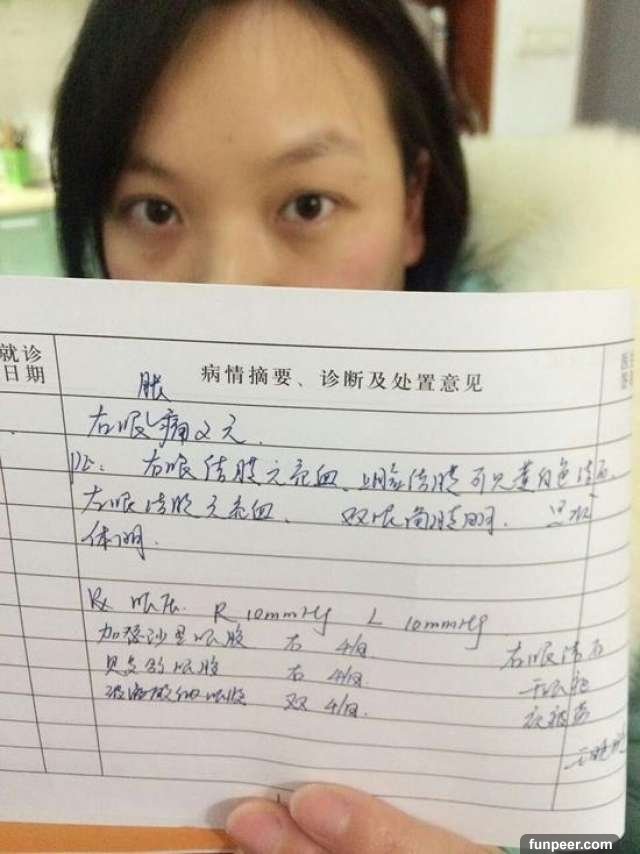 就诊
日期
病情摘要、诊断及处置意见
胀
右眼痛2天.
PE: 右眼结膜充血、上睑结膜可见黄白色结石,
左眼结膜充血、 双眼角膜明.
体明.
Rx 眼压 R 10mmHg L 10mmHg
加替沙星眼 右 4/日
右眼结石
贝复舒眼 右 4/日
玻璃酸钠眼 双 4/日.
funpeer.com